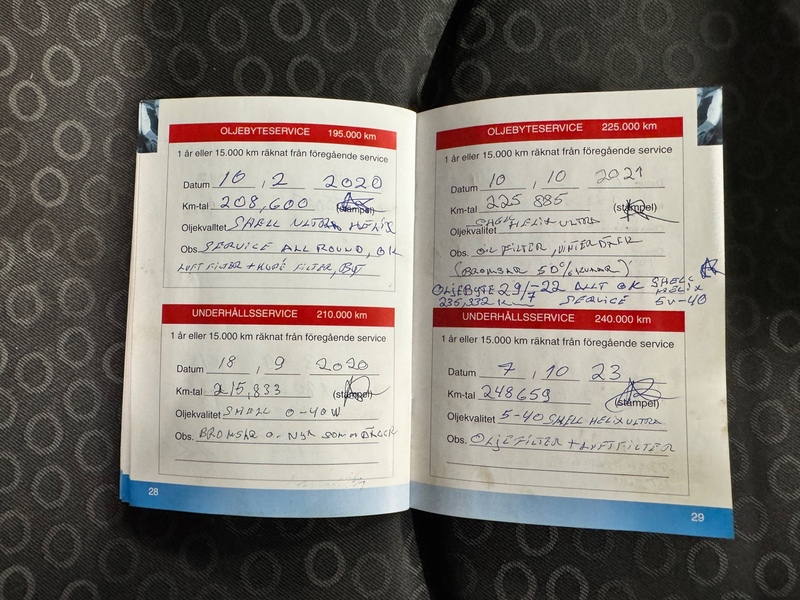 OLJEBYTESERVICE 195.000 km
1 år eller 15.000 km räknat från föregående service
Datum 10 , 2 2020
Km-tal 208,600 (stämpel)
Oljekvalitet SHELL ULTRA HELIX
Obs. SERVICE ALL ROUND, OK
LUFTFILTER + KUPÉ FILTER, BYT
UNDERHÅLLSSERVICE 210.000 km
1 år eller 15.000 km räknat från föregående service
Datum 18 , 9 2020
Km-tal 215,833 (stämpel)
Oljekvalitet SHELL 0-40W
Obs. BROMSAR O. NYA SOMMARDÄCK
28
OLJEBYTESERVICE 225.000 km
1 år eller 15.000 km räknat från föregående service
Datum 10 , 10 2021
Km-tal 225 885 (stämpel)
Oljekvalitet SHELL HELIX ULTRA
Obs. OIL FILTER, VINTERDÄCK
(BROMSAR 50%
OLJEBYTE 29/7-22 ALLT OK SHELL HELIX
235,332 km SERVICE 5W-40
UNDERHÅLLSSERVICE 240.000 km
1 år eller 15.000 km räknat från föregående service
Datum 7 , 10 23
Km-tal 248659 (stämpel)
Oljekvalitet 5-40 SHELL HELIX ULTRA
Obs. OLJEFILTER + LUFTFILTER
29